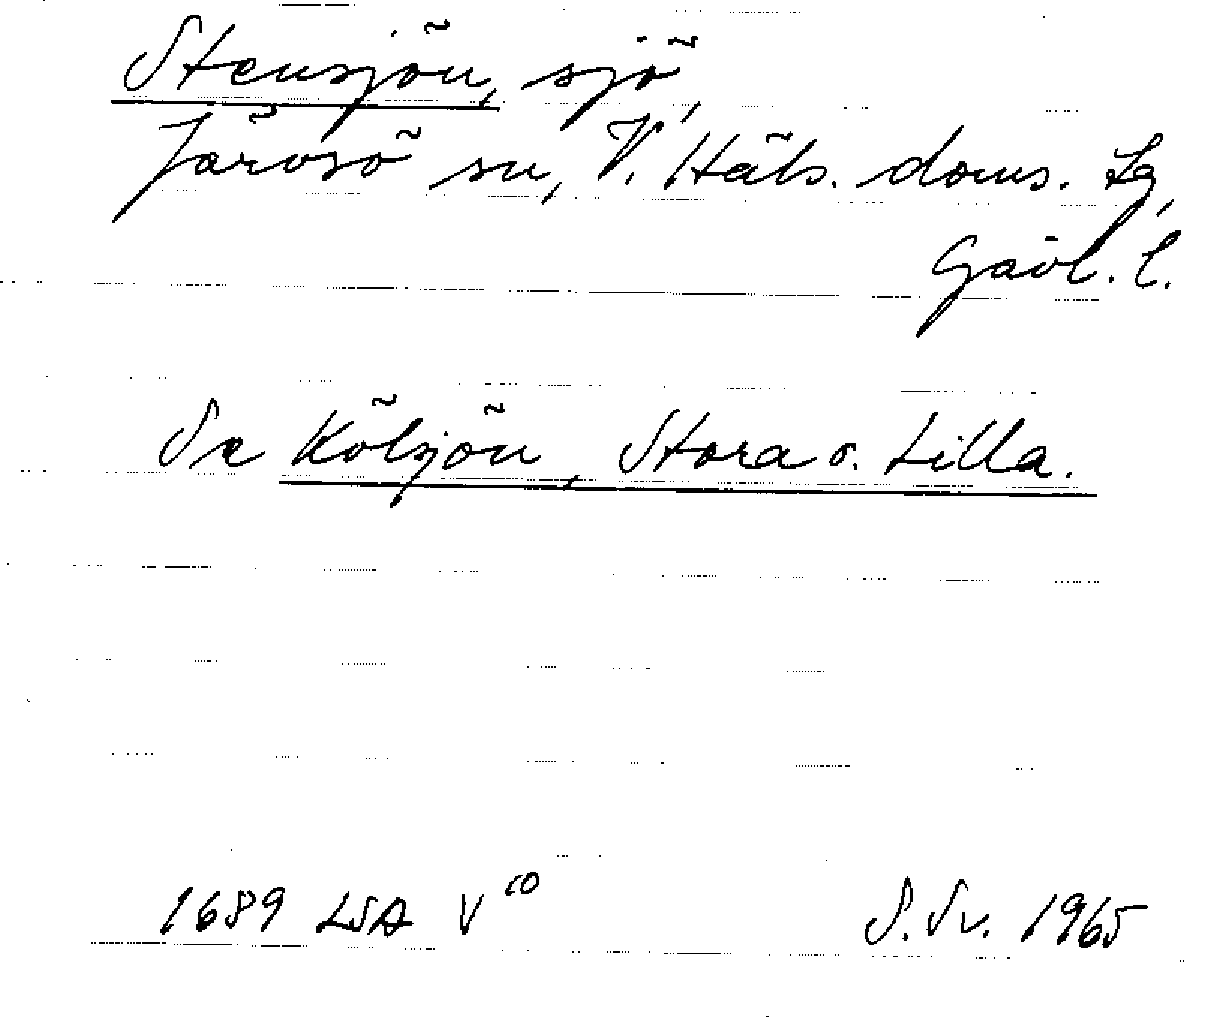 Stensjön, sjö,
Järvsö sn, V. Häls. doms. Lg,
Gävl. l.
Se Kölsjön, Stora o. Lilla.
1689 LSA V 10 S. Sv. 1965